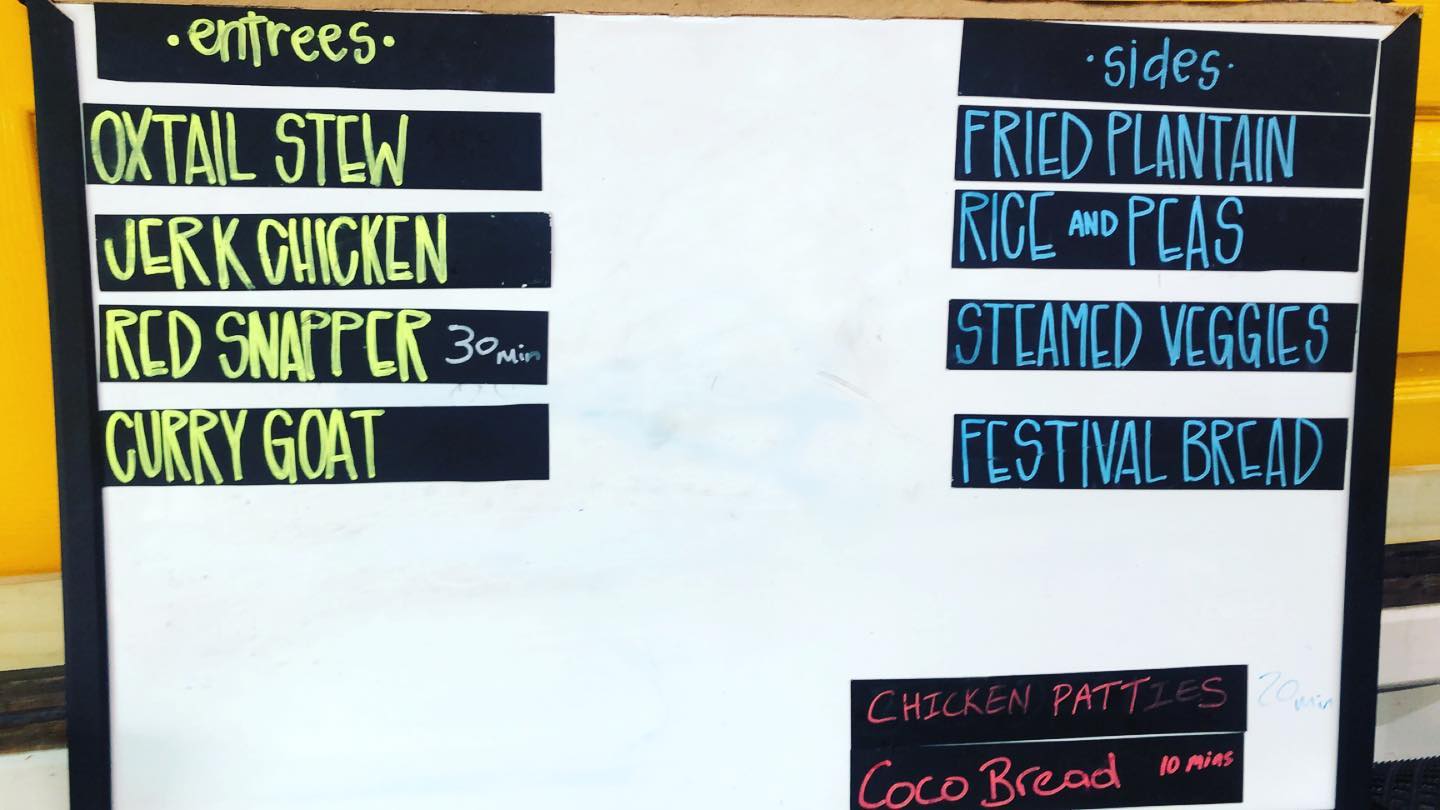 ·entrees·
OXTAIL STEW
JERK CHICKEN
RED SNAPPER 30 min
CURRY GOAT
·sides·
FRIED PLANTAIN
RICE AND PEAS
STEAMED VEGGIES
FESTIVAL BREAD
CHICKEN PATTIES 20 min
Coco Bread 10 mins